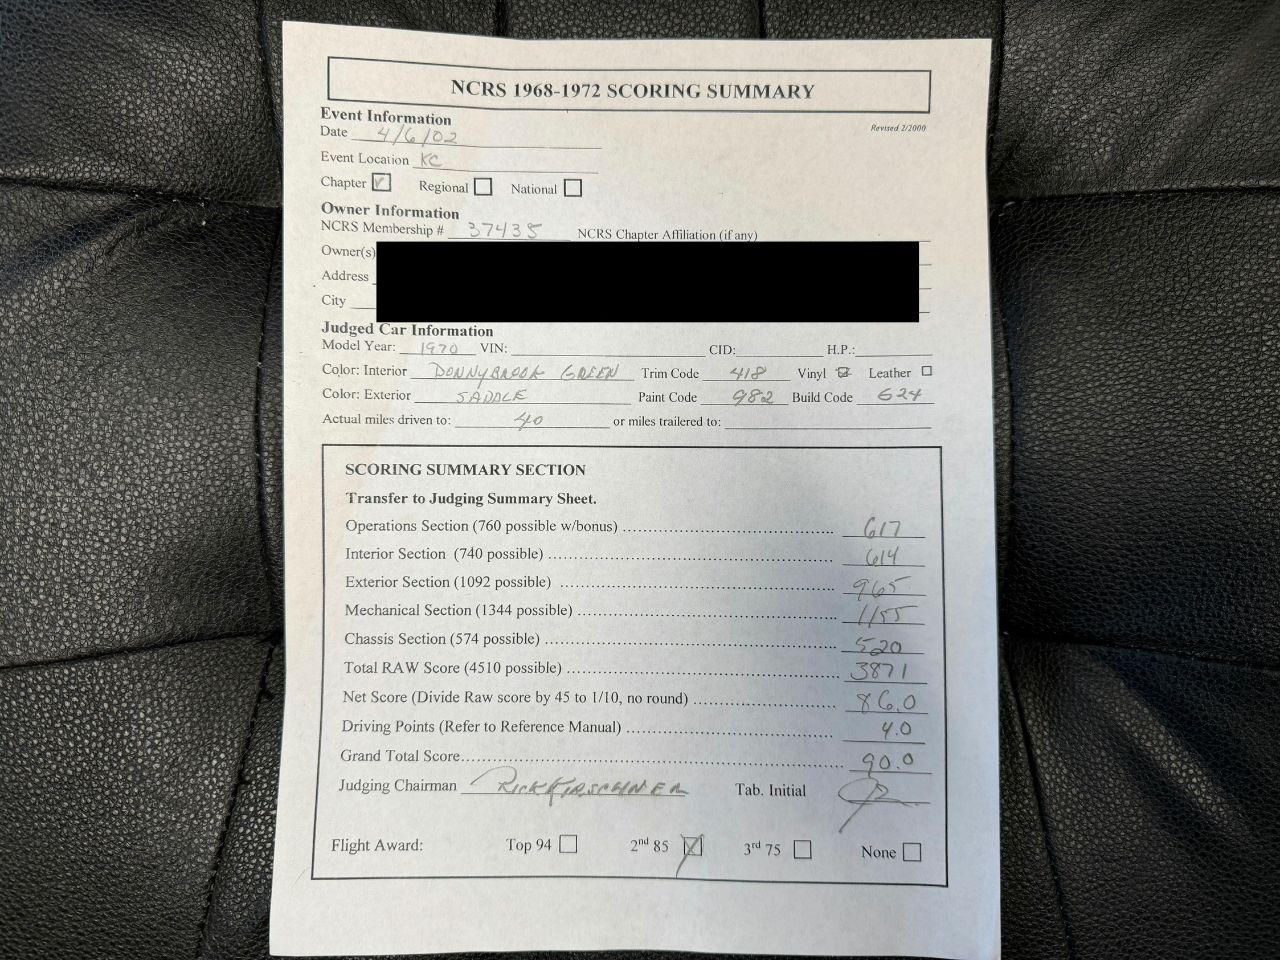 NCRS 1968-1972 SCORING SUMMARY
Event Information
Revised 2/2000
Date 4/6/02
Event Location KC
Chapter Regional National
Owner Information
NCRS Membership # 37435 NCRS Chapter Affiliation (if any)
Owner(s)
Address
City
Judged Car Information
Model Year: 1970 VIN: CID: H.P.:
Color: Interior DONNYBROOK GREEN Trim Code 418 Vinyl Leather
Color: Exterior SADDLE Paint Code 982 Build Code 624
Actual miles driven to: 40 or miles trailered to:
SCORING SUMMARY SECTION
Transfer to Judging Summary Sheet.
Operations Section (760 possible w/bonus) 617
Interior Section (740 possible) 614
Exterior Section (1092 possible) 965
Mechanical Section (1344 possible) 1155
Chassis Section (574 possible) 520
Total RAW Score (4510 possible) 3871
Net Score (Divide Raw score by 45 to 1/10, no round) 86.0
Driving Points (Refer to Reference Manual) 4.0
Grand Total Score 90.0
Judging Chairman RICK KIRSCHNER Tab. Initial
Flight Award: Top 94 2nd 85 3rd 75 None